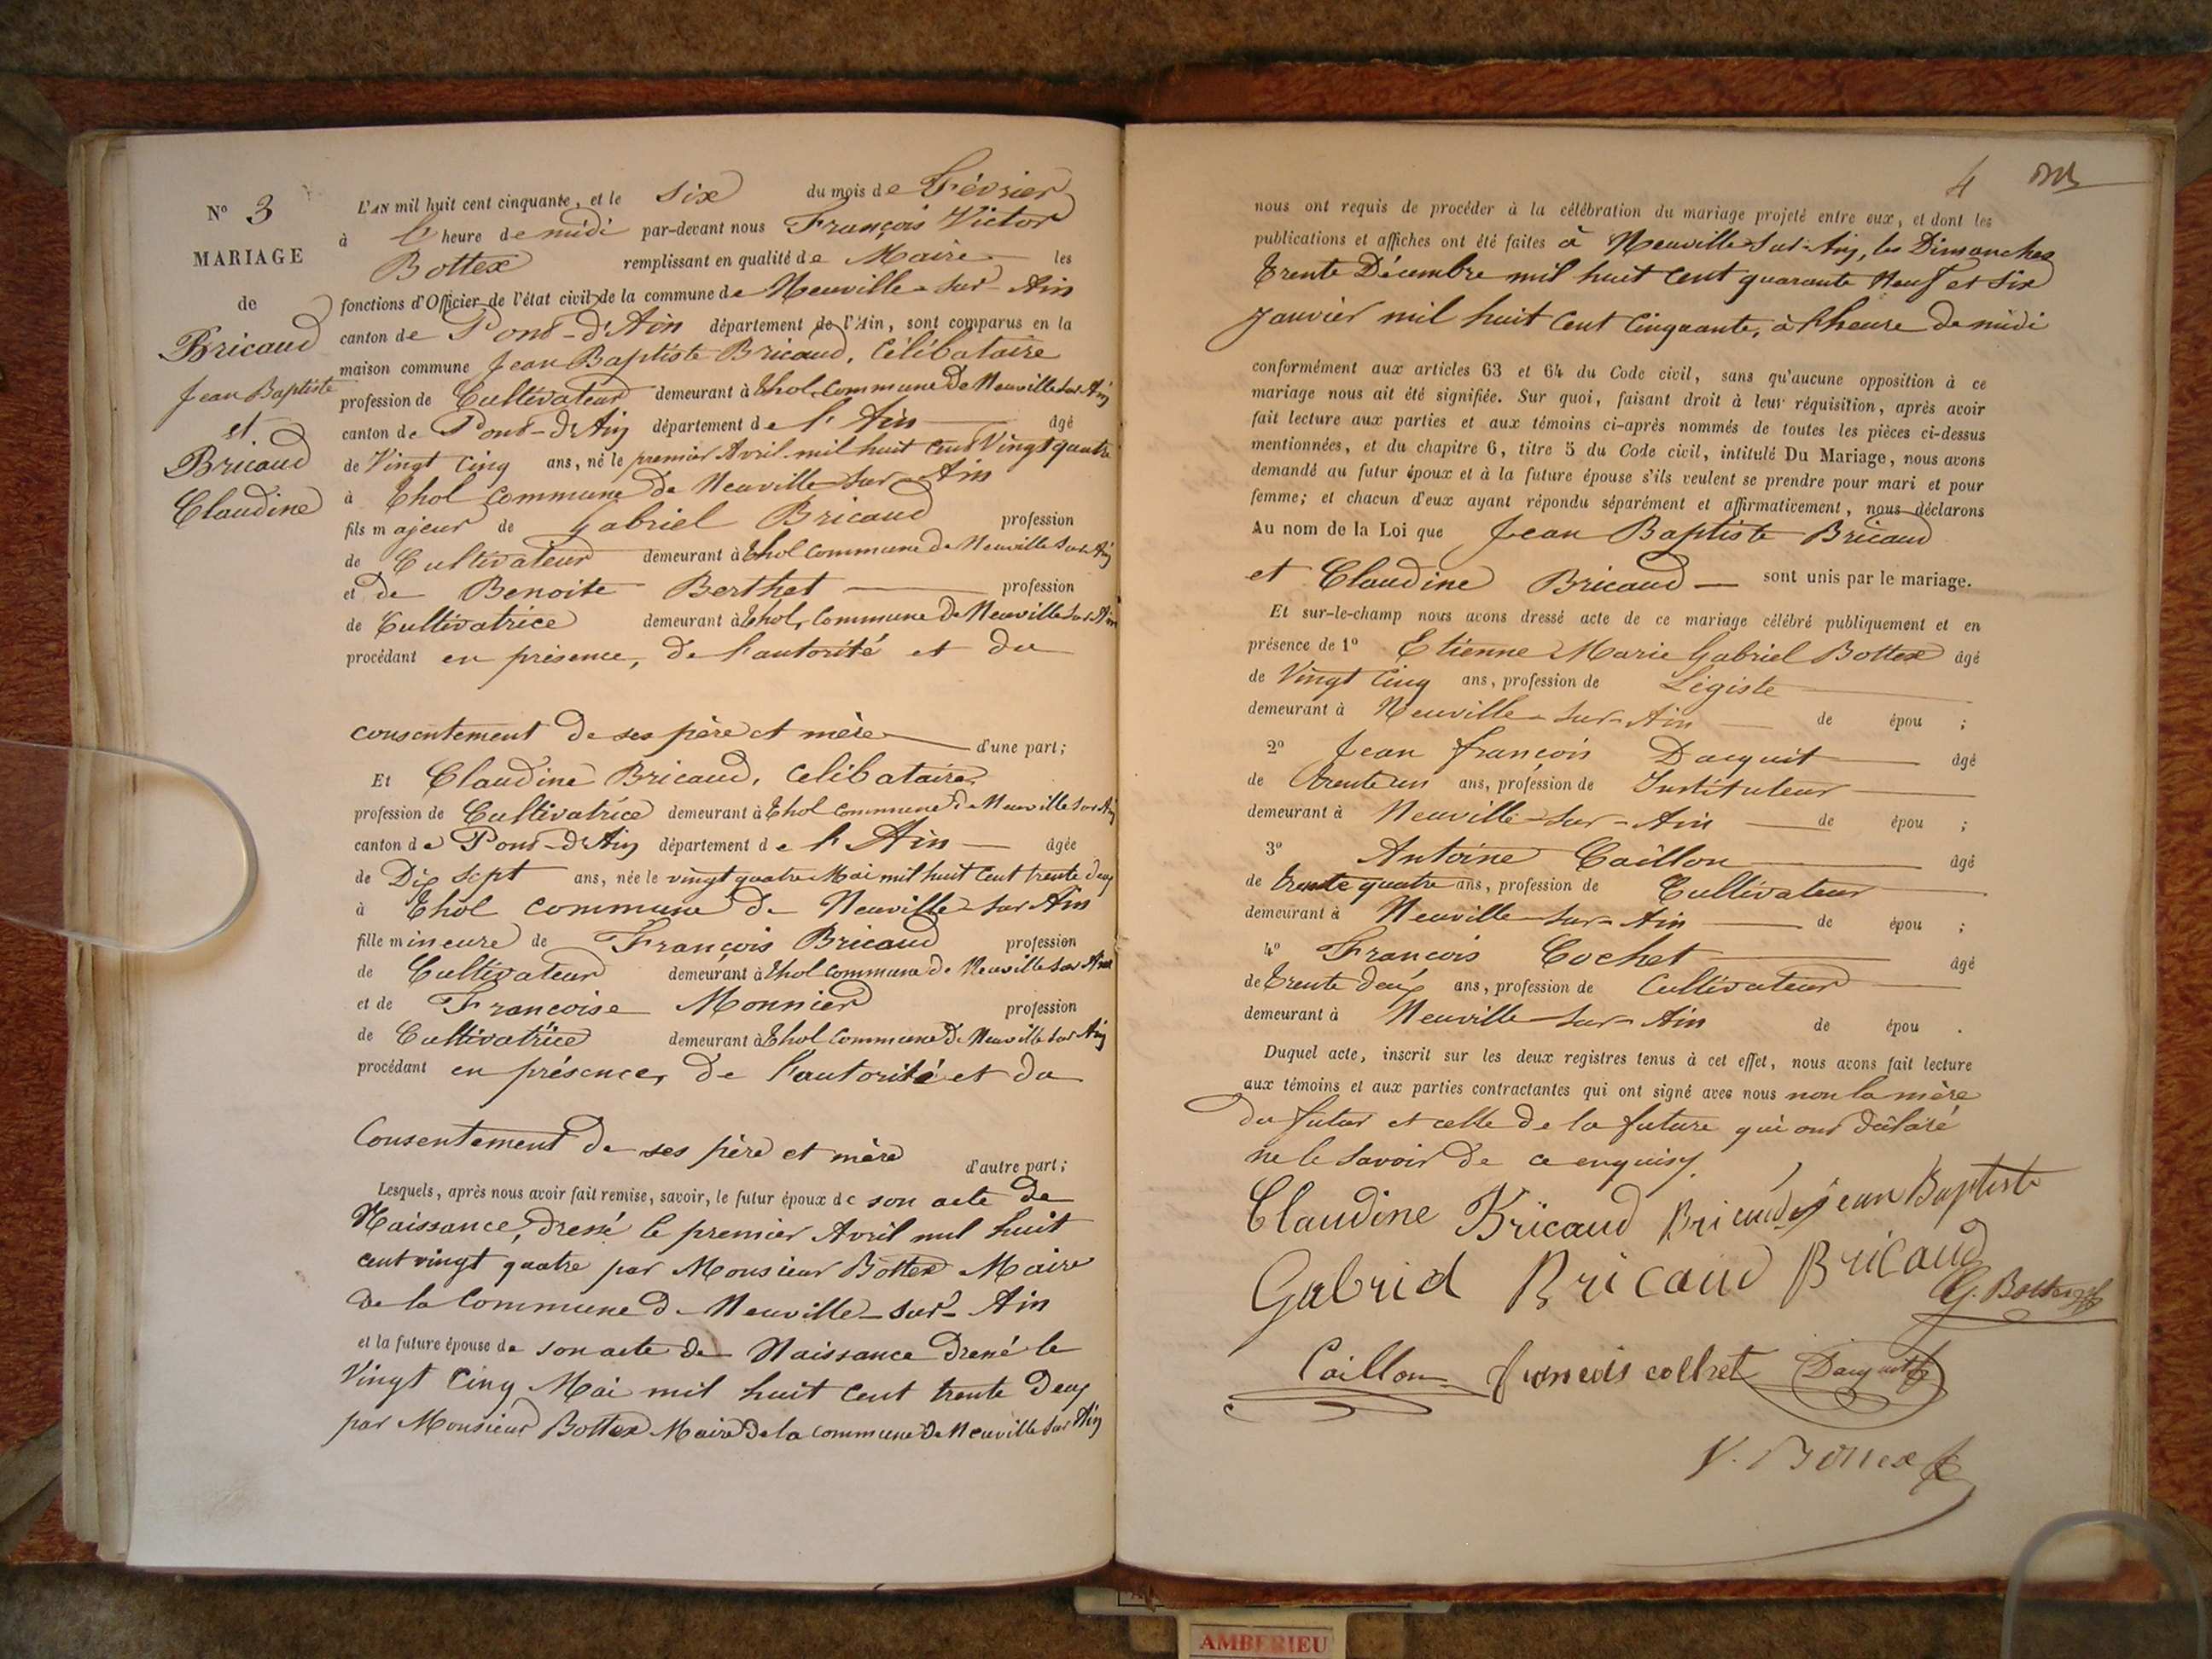 N° 3
MARIAGE
de
Bricaud
Jean Baptiste
et
Bricaud
Claudine
L'AN mil huit cent cinquante, et le six du mois de Février
à l'heure de midi par-devant nous François Victor
Bottex remplissant en qualité de Maire les
fonctions d'Officier de l'état civil de la commune de Neuville-sur-Ain
canton de Pont-d'Ain département de l'Ain, sont comparus en la
maison commune Jean Baptiste Bricaud, Célibataire
profession de Cultivateur demeurant à Thol commune de Neuville sur Ain
canton de Pont-d'Ain département de l'Ain âgé
de Vingt Cinq ans, né le premier Avril mil huit Cent Vingt quatre
à Thol commune de Neuville-sur-Ain
fils majeur de Gabriel Bricaud profession
de Cultivateur demeurant à Thol commune de Neuville sur Ain
et de Benoite Berthet profession
de Cultivatrice demeurant à Thol, Commune de Neuville sur Ain
procédant en présence, de l'autorité et du
consentement de ses père et mère d'une part;
Et Claudine Bricaud, Celibataire
profession de Cultivatrice demeurant à Thol commune de Neuville sur Ain
canton de Pont-d'Ain département de l'Ain âgée
de Dix sept ans, née le vingt quatre Mai mil huit Cent trente deux
à Thol commune de Neuville-sur Ain
fille mineure de François Bricaud profession
de Cultivateur demeurant à Thol commune de Neuville sur Ain
et de Françoise Monnier profession
de Cultivatrice demeurant à Thol Commune de Neuville sur Ain
procédant en présence, de l'autorité et du
Consentement de ses père et mère d'autre part;
Lesquels, après nous avoir fait remise, savoir, le futur époux de son acte de
Naissance, dressé le premier Avril mil huit
cent vingt quatre par Monsieur Bottex Maire
de la Commune de Neuville-sur-Ain
et la future épouse de son acte de Naissance dressé le
Vingt Cinq Mai mil huit Cent trente deux
par Monsieur Bottex Maire de la commune de Neuville sur Ain
4
nous ont requis de procéder à la célébration du mariage projeté entre eux, et dont les
publications et affiches ont été faites à Neuville-sur-Ain, les Dimanches
Trente Décembre mil huit Cent quarante Neuf et Six
Janvier mil huit Cent Cinquante, à l'heure de midi
conformément aux articles 63 et 64 du Code civil, sans qu'aucune opposition à ce
mariage nous ait été signifiée. Sur quoi, faisant droit à leur réquisition, après avoir
fait lecture aux parties et aux témoins ci-après nommés de toutes les pièces ci-dessus
mentionnées, et du chapitre 6, titre 5 du Code civil, intitulé Du Mariage, nous avons
demandé au futur époux et à la future épouse s'ils veulent se prendre pour mari et pour
femme; et chacun d'eux ayant répondu séparément et affirmativement, nous déclarons
Au nom de la Loi que Jean Baptiste Bricaud
et Claudine Bricaud sont unis par le mariage.
Et sur-le-champ nous avons dressé acte de ce mariage célébré publiquement et en
présence de 1° Etienne Marie Gabriel Bottex âgé
de Vingt Cinq ans, profession de Légiste
demeurant à Neuville-sur-Ain de épou ;
2° Jean françois Dacquit âgé
de trente un ans, profession de Instituteur
demeurant à Neuville-sur-Ain de épou ;
3° Antoine Caillon âgé
de trente quatre ans, profession de Cultivateur
demeurant à Neuville-sur-Ain de épou ;
4° François Cochet âgé
de trente deux ans, profession de Cultivateur
demeurant à Neuville-sur-Ain de épou .
Duquel acte, inscrit sur les deux registres tenus à cet effet, nous avons fait lecture
aux témoins et aux parties contractantes qui ont signé avec nous non la mère
du futur et celle de la future qui ont déclaré
ne le savoir de ce enquises
Claudine Bricaud Bricaud jean Baptiste
Gabriel Bricaud Bricaud
G. Bottex
Caillon francois collret Dacquit
V. Bottex
AMBERIEU